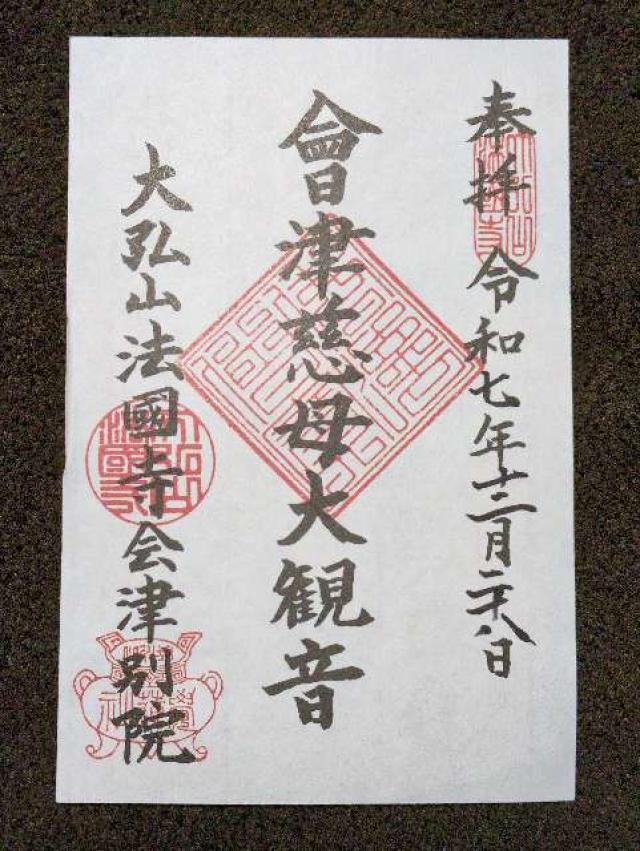 奉拝 令和七年十二月二十八日
會津慈母大観音
大弘山法國寺会津別院